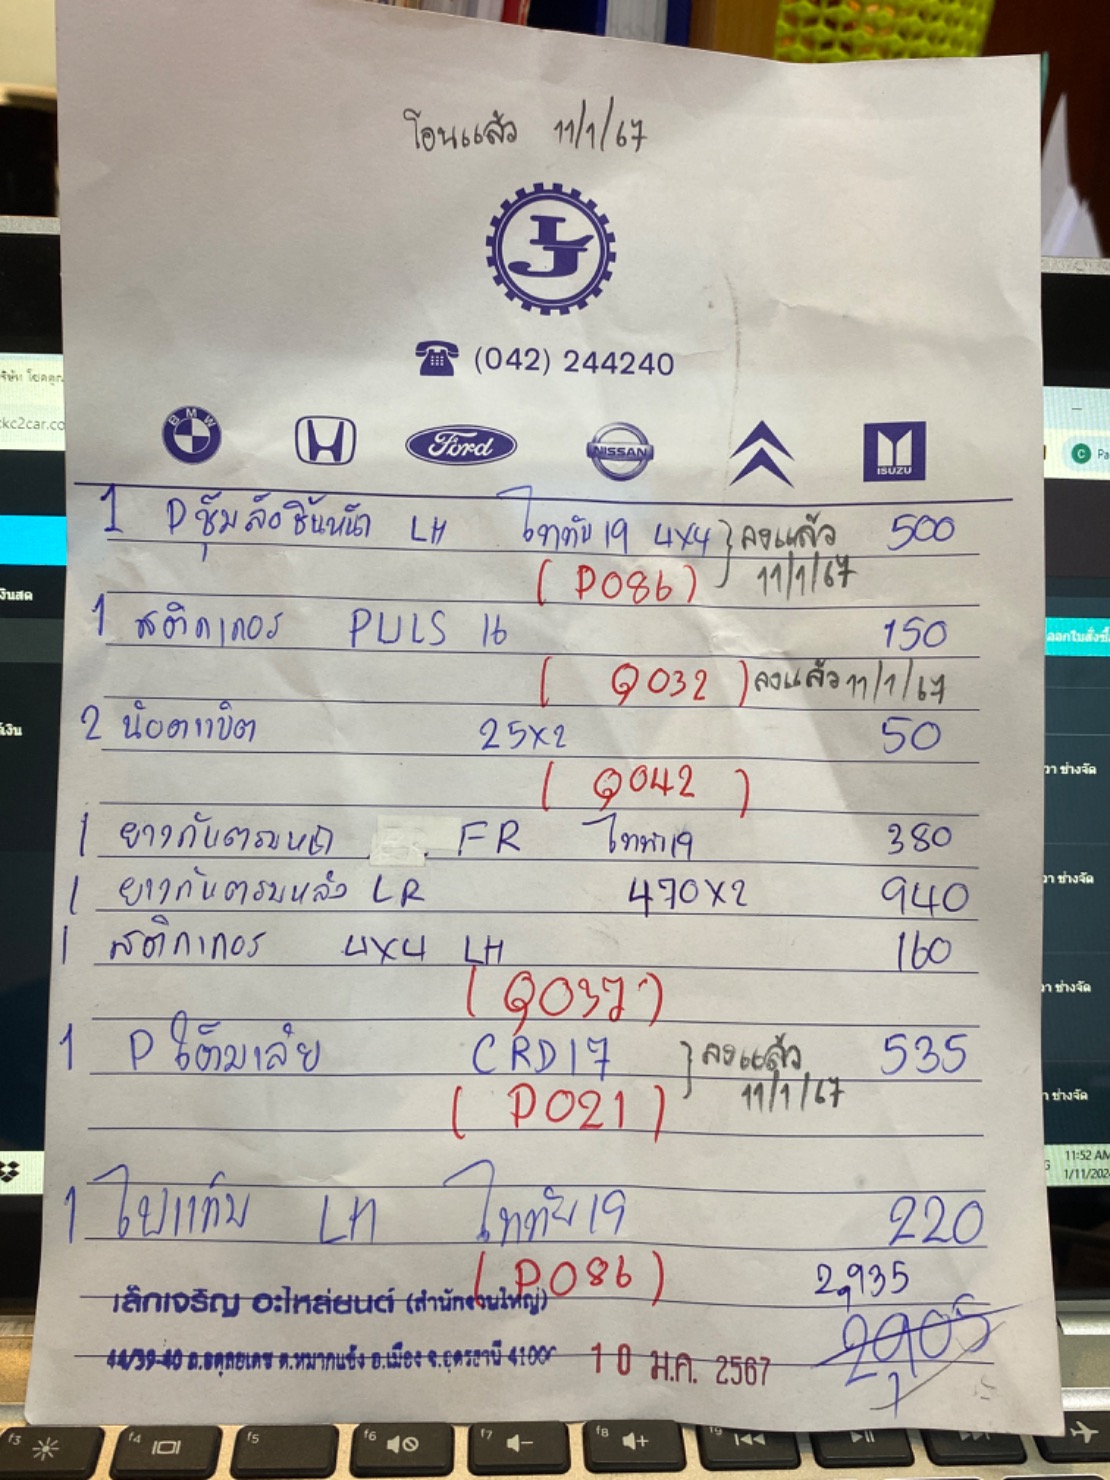 โอนแล้ว 11/1/67
(042) 244240
BMW
Ford
NISSAN
ISUZU
1 Pซุ้มล้อชิ้นหน้า LH ไททัน19 4X4 ลงแล้ว 500
(P086) 11/1/67
1 สติกเกอร์ PULS 16 150
(Q032) ลงแล้ว 11/1/67
2 น๊อตแบิต 25X2 50
(Q042)
1 ยางกันตรบหน้า FR ไททัน19 380
1 ยางกันตรบหลัง LR 470X2 940
1 สติกเกอร์ 4X4 LH 160
(Q037)
1 P CRD17 ลงแล้ว 535
(P021) 11/1/67
1 ไฟแก้ม LH ไททัน19 220
(P086) 2,935
เล็กเจริญ อะไหล่ยนต์ (สำนักงานใหญ่) 2,905
44/39-40 ถ.อดุลยเดช ต.หมากแข้ง อ.เมือง จ.อุดรธานี 41000 10 ม.ค. 2567
kc2car.co
งินสด
ว่า ช่างจัด
11:52 AM
f3
f4
f5
f6
f7
f8